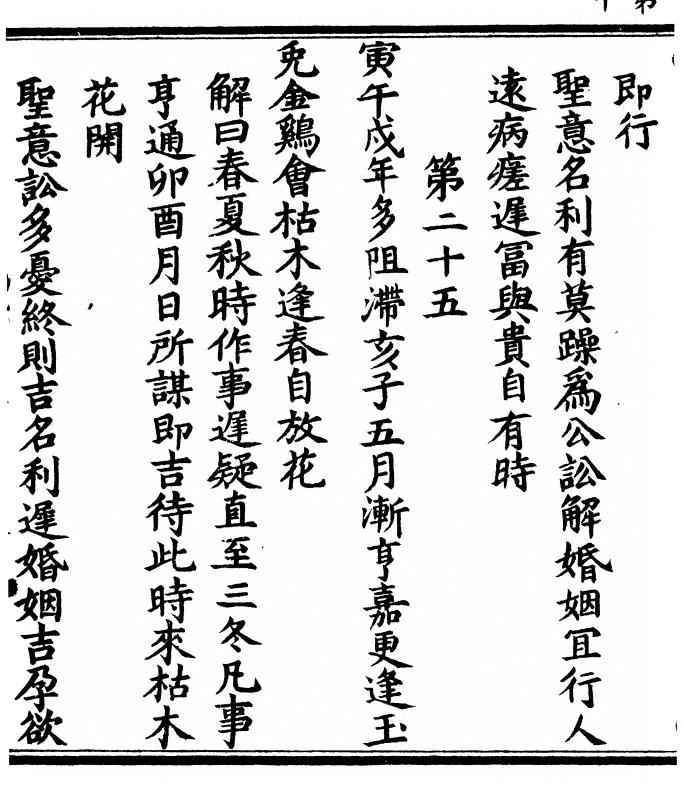 即行
聖意名利有莫躁爲公訟解婚姻冝行人
遠病瘥遲冨與貴自有時
第二十五
寅午戍年多阻滯亥子五月漸亨嘉更逢玉
兎金鷄會枯木逢春自放花
解曰春夏秋時作事遲疑直至三冬凡事
亨通卯酉月日所謀即吉待此時來枯木
花開
聖意訟多憂終則吉名利遲婚姻吉孕欲